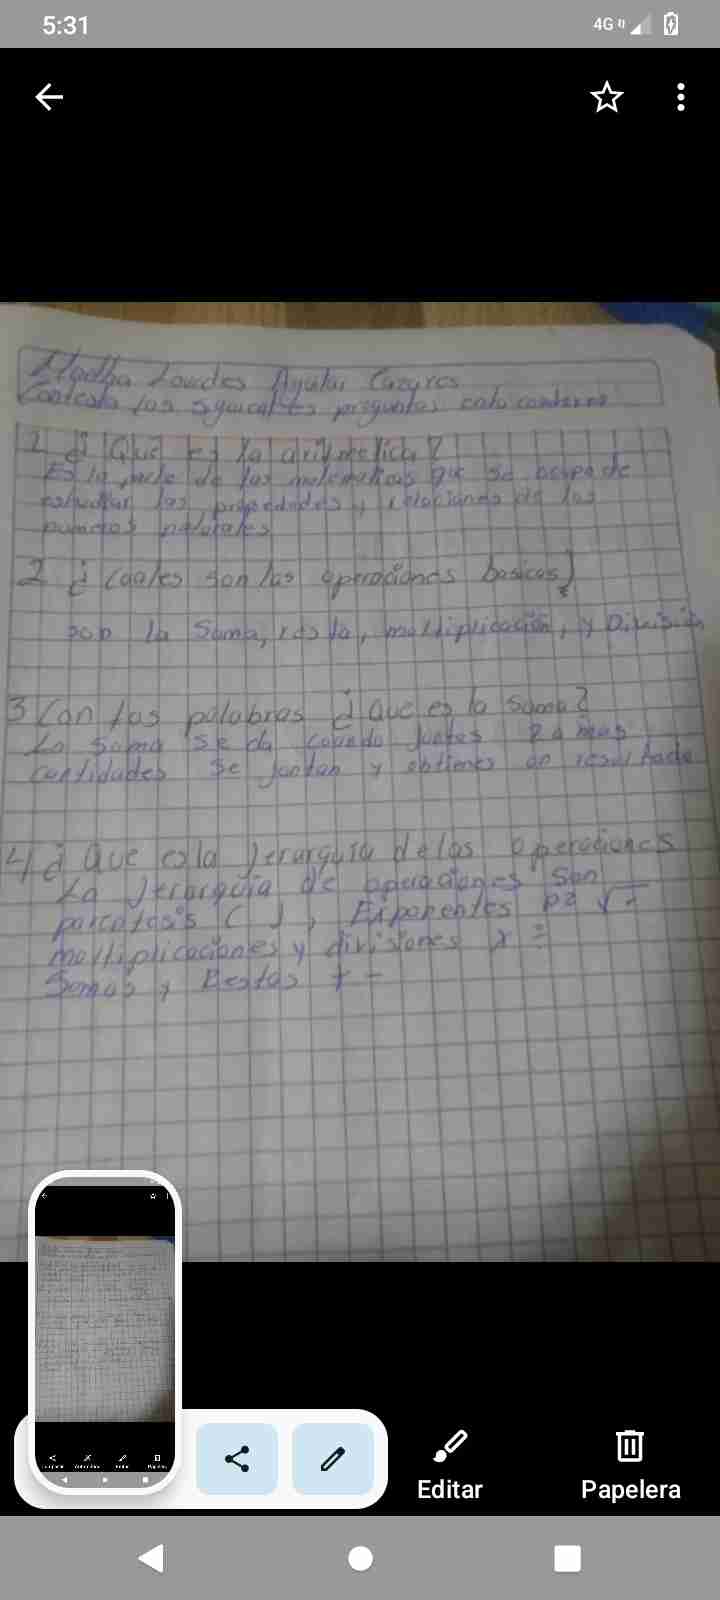 5:31
4G
Lourdes Ayala Cazares
Contesta las preguntas cuaderno
1 ¿Que es la aritmetica?
Es la parte de las matematicas que se ocupa de
estudiar las propiedades y relaciones de los
numeros naturales
2 ¿Cuales son las operaciones basicas?
son la Suma, resta, multiplicación, y División
3 Con tus palabras ¿Que es la suma?
La suma se da cuando juntas 2 o mas
cantidades se juntan y obtienes un resultado
4 ¿Que es la Jerarquia de las operaciones
La Jerarquia de operaciones son
parentesis ( ), Exponentes √
multiplicaciones y divisiones x ÷
Sumas y Restas + -
Editar
Papelera